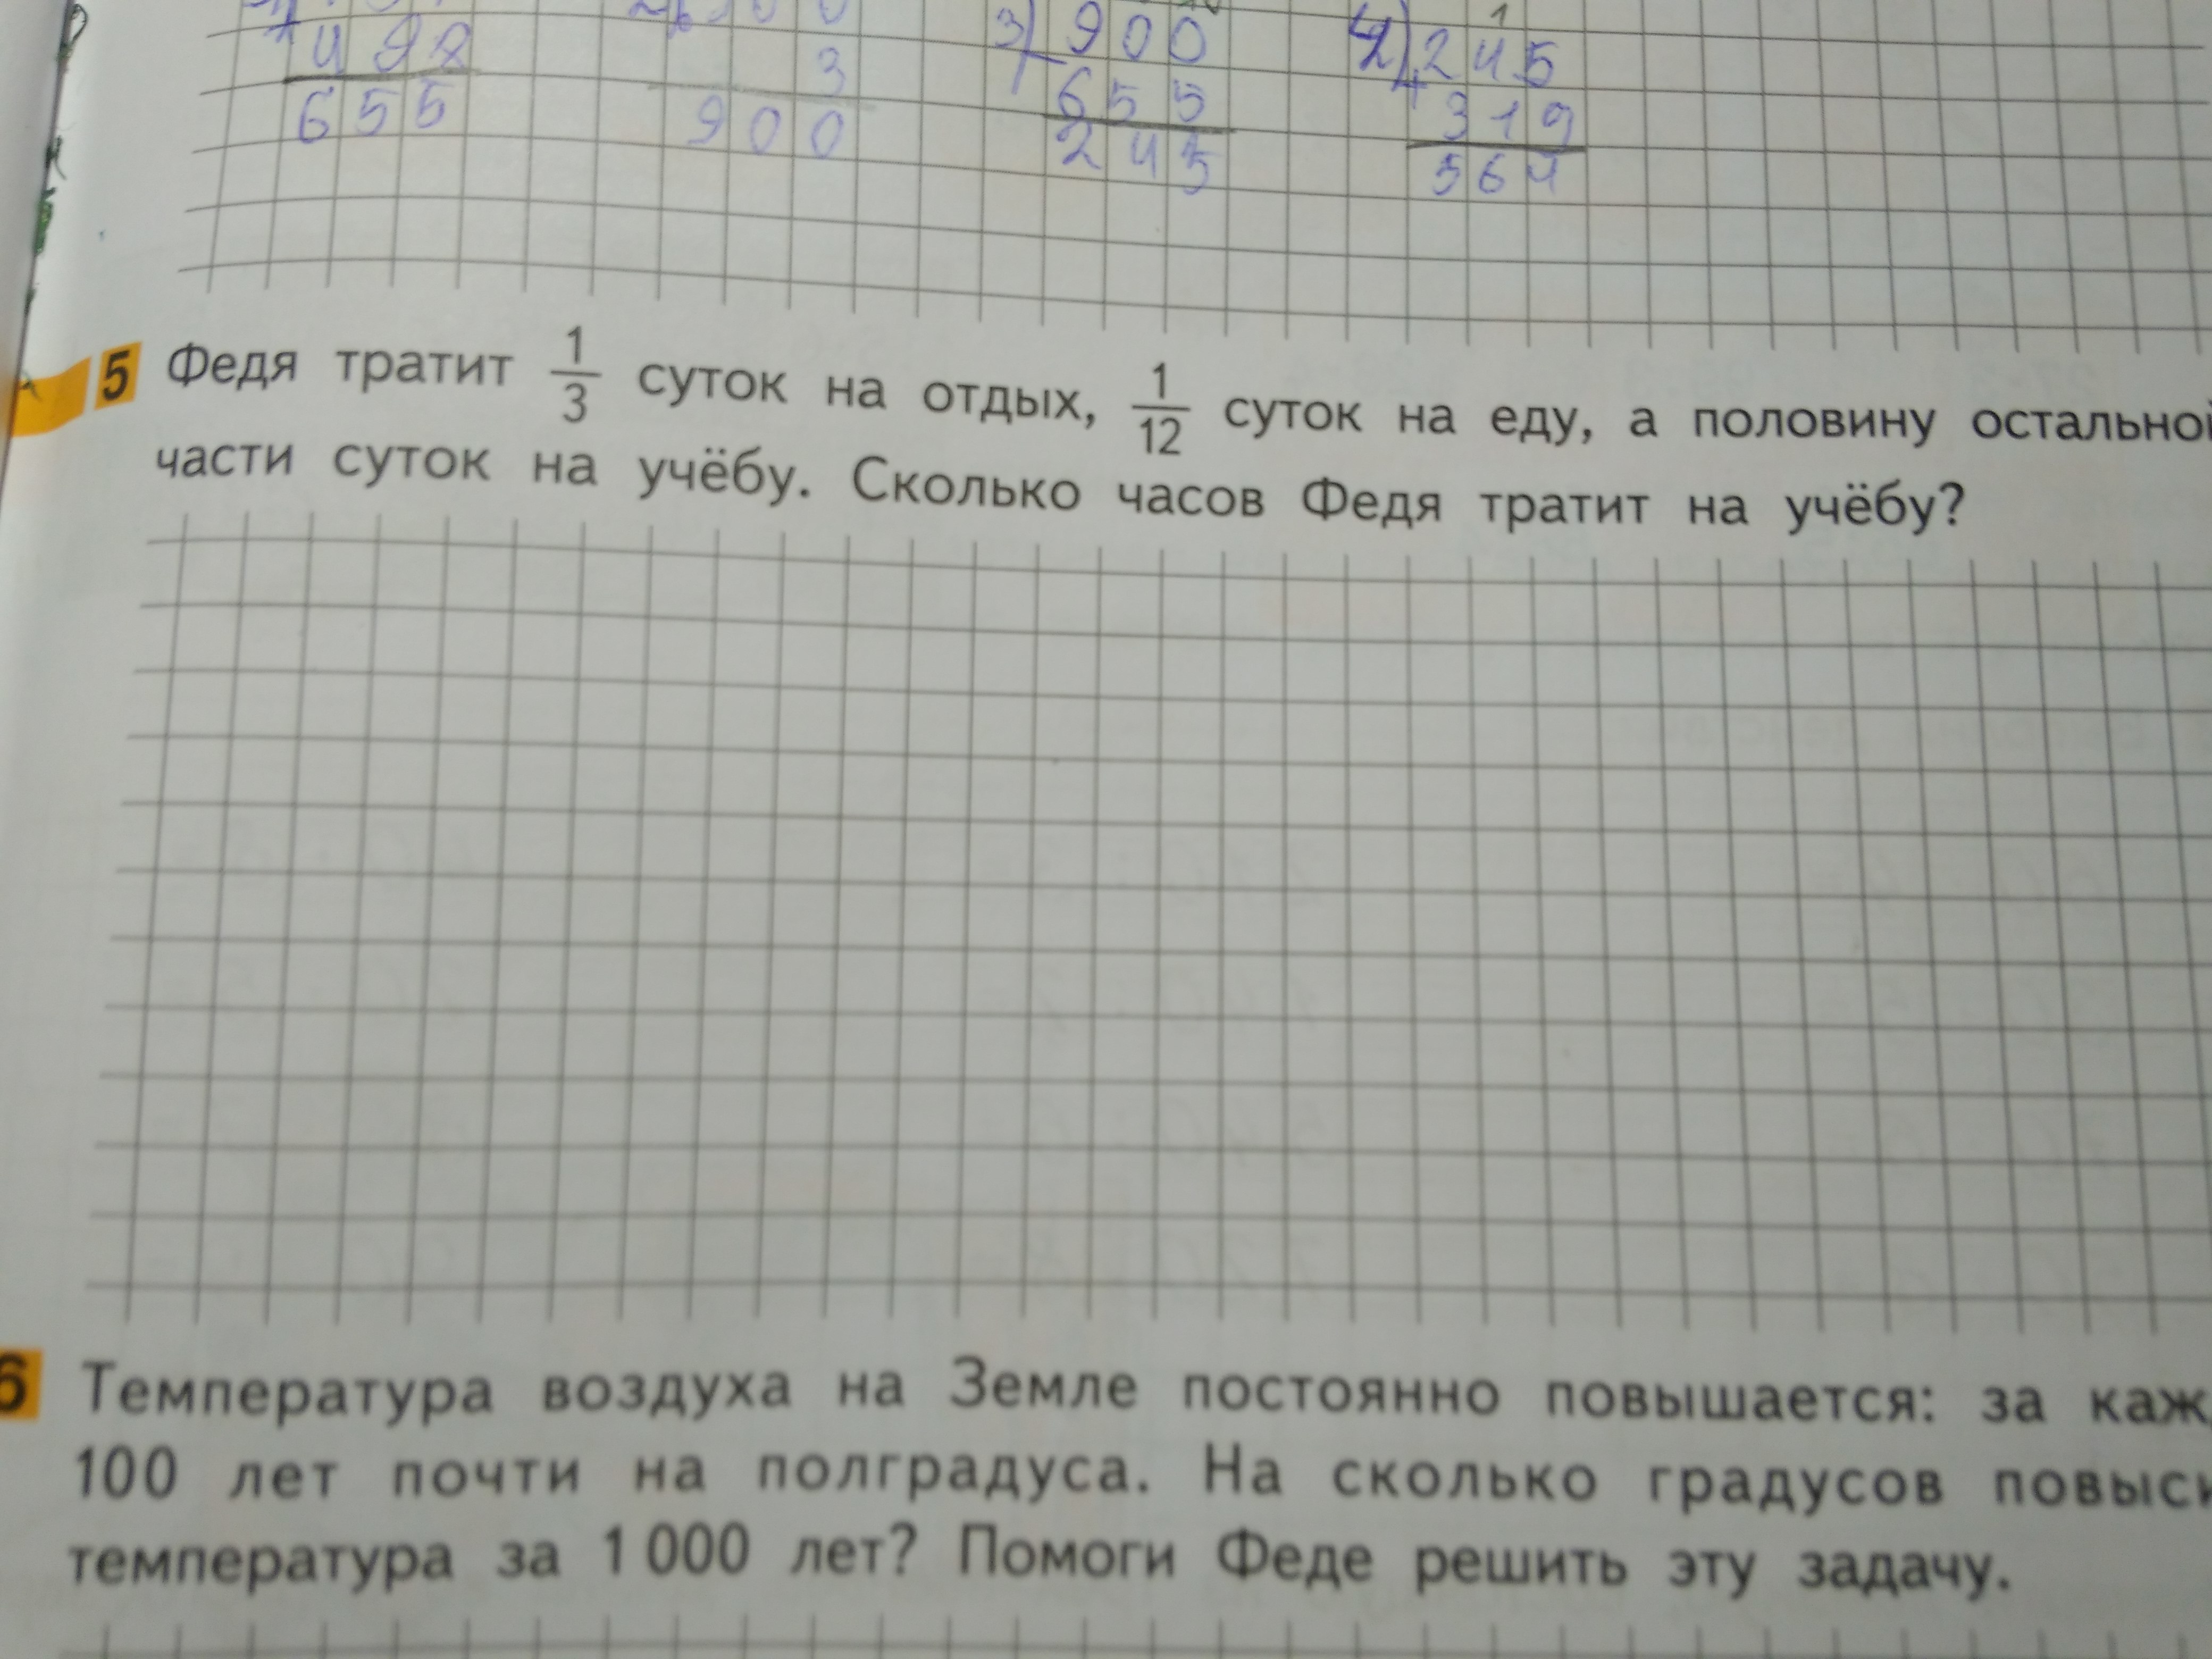 3) 900 4) 245
498 3 655 + 319
655 900 245 564
5 Федя тратит 1/3 суток на отдых, 1/12 суток на еду, а половину остальной
части суток на учёбу. Сколько часов Федя тратит на учёбу?
6 Температура воздуха на Земле постоянно повышается: за каж
100 лет почти на полградуса. На сколько градусов повыси
температура за 1 000 лет? Помоги Феде решить эту задачу.